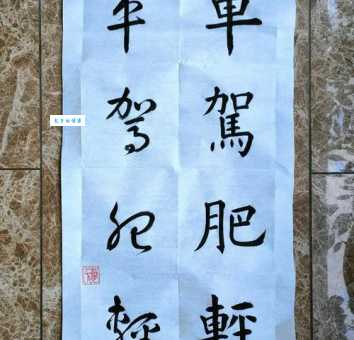 車駕肥輕
車駕肥輕